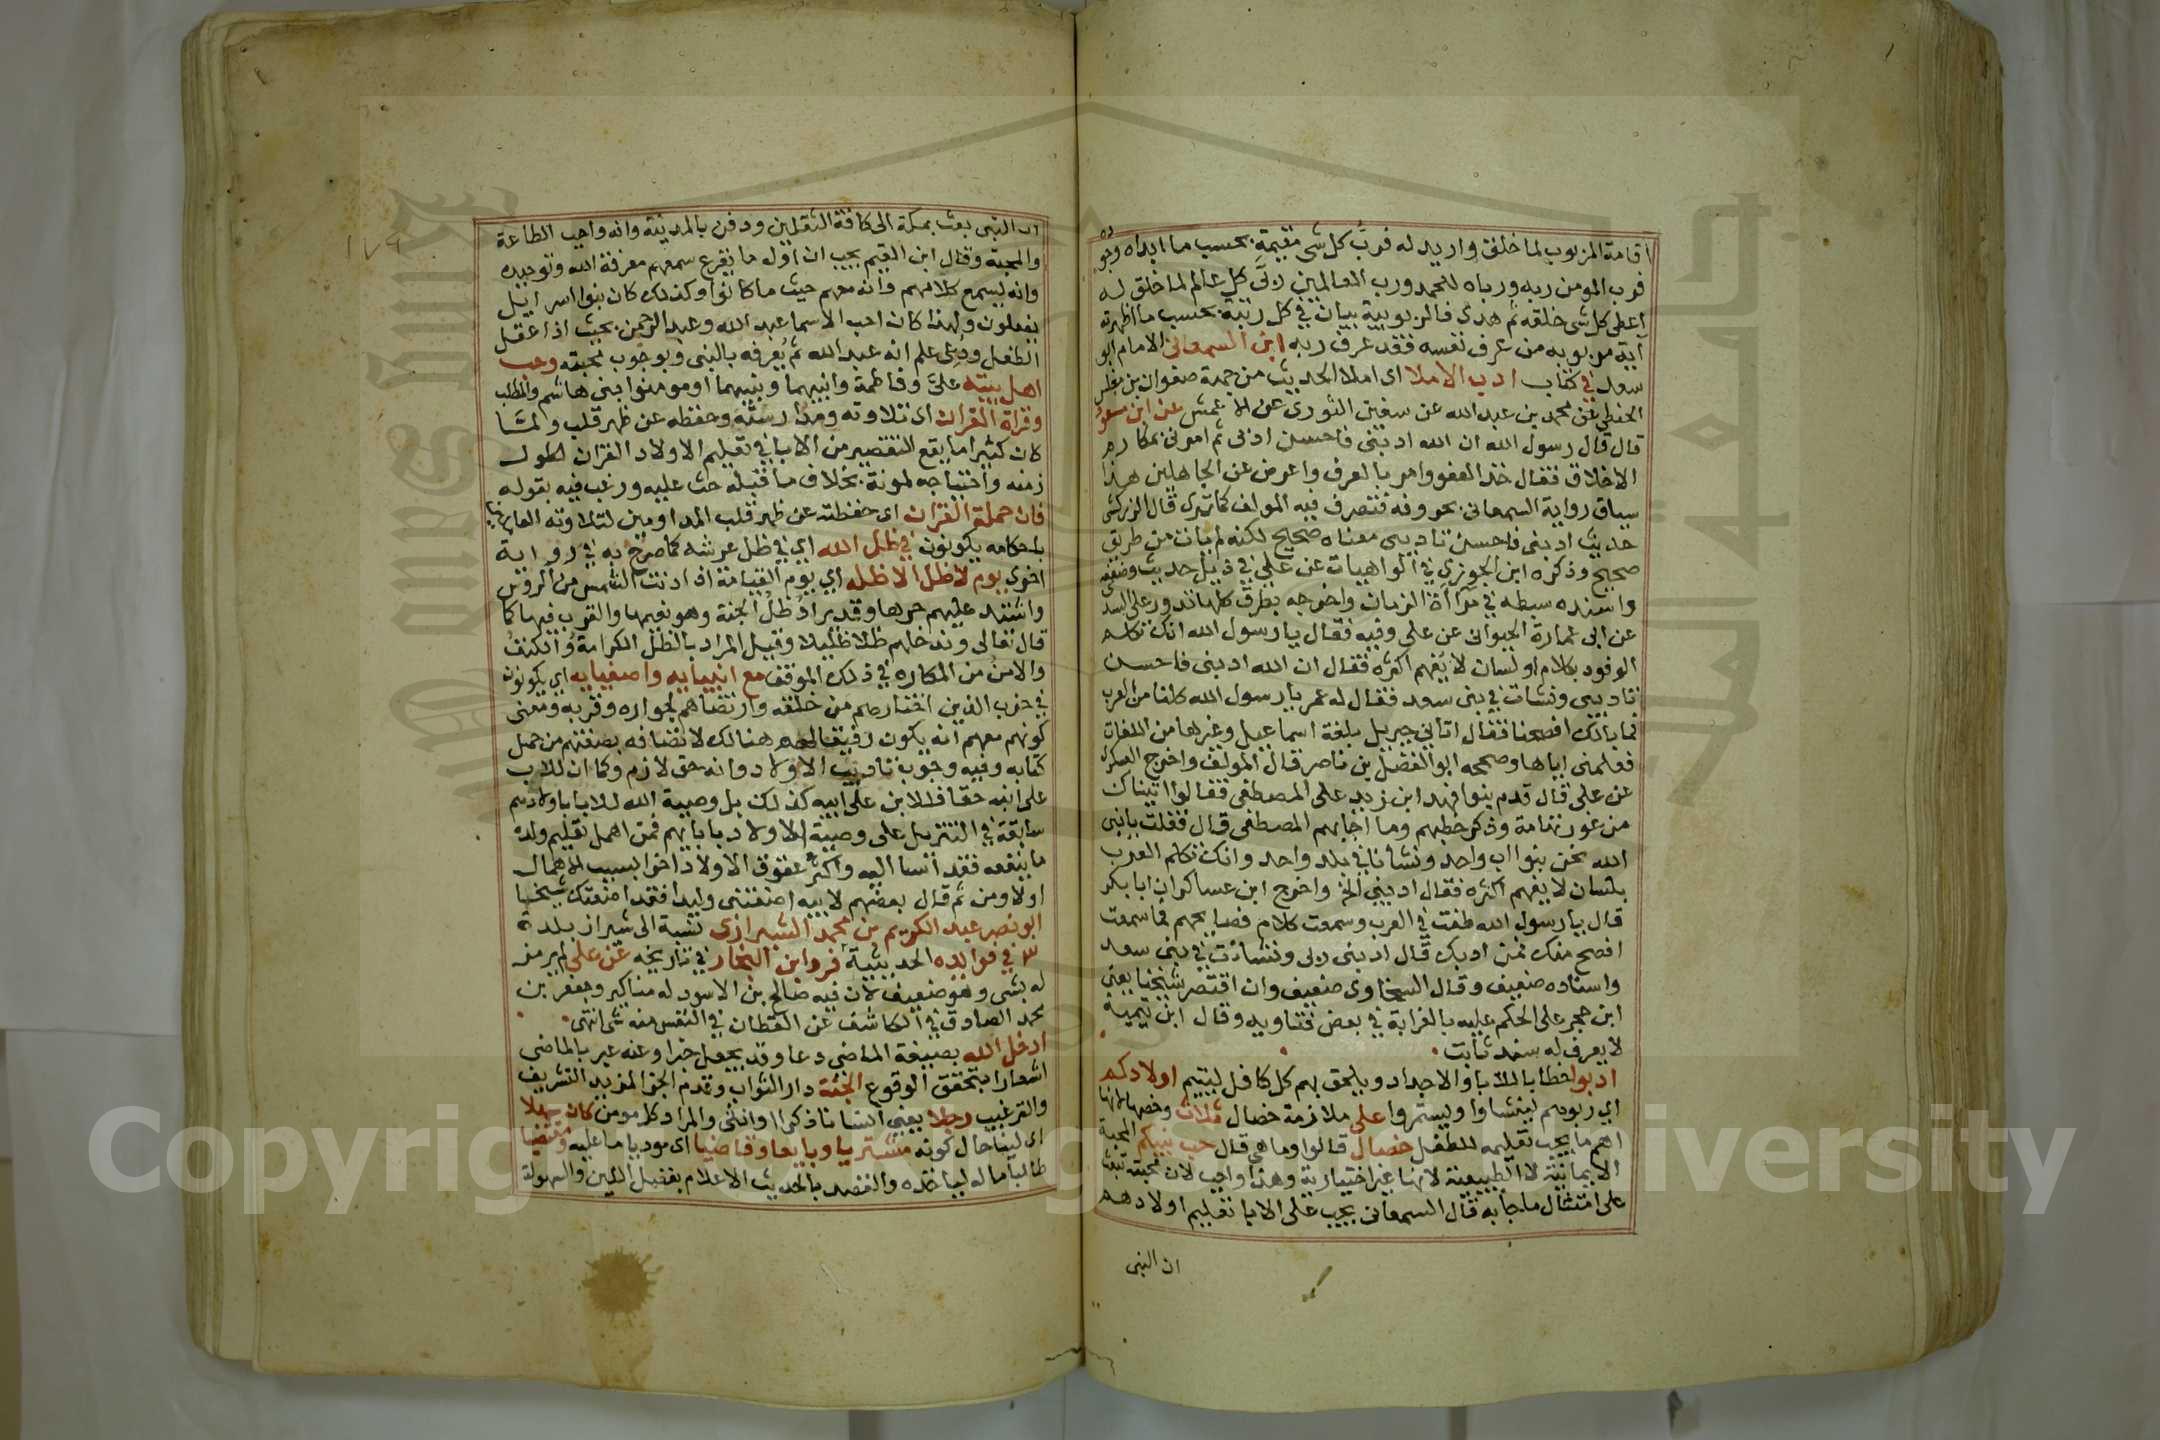 اقامة المربوب لما خلق واريد له فرب كل شى مقيمه بحسب ما ابداه وجوده
فرب المومن ربه ورباه للحمد ورب العالمين ربى كل عالم لما خلق له
اعطى كل شى خلقه ثم هدى فالربوبية بيان في كل رتبة بحسب ما اظهرته
آية مربوبه من عرف نفسه فقد عرف ربه ابن السمعانى الامام ابو
سعد في كتاب ادب الاملا اى املا الحديث من جهة صفوان بن مغلس
الحنطى عن محمد بن عبد الله عن سفين الثورى عن الاعمش عن ابن مسعود
قال قال رسول الله ان الله ادبنى فاحسن ادبى ثم امرنى بمكارم
الاخلاق فقال خذ العفو وامر بالعرف واعرض عن الجاهلين هذا
سياق رواية السمعانى بحروفه فتصرف فيه المولف كما ترى قال الزركشى
حديث ادبنى فاحسن تاديبى معناه صحيح لكنه لم يات من طريق
صحيح وذكره ابن الجوزي في الواهيات عن على في ذيل حديث وضعفه
واسنده سبطه في مرآة الزمان واخرجه بطرق كلها تدور على السدى
عن ابى عمارة الحيوانى عن على وفيه فقال يا رسول الله انك تكلم
الوفود بكلام او لسان لا يفهم اكثره فقال ان الله ادبنى فاحسن
تاديبى ونشات في بنى سعد فقال له عمر يا رسول الله كلنا من العرب
فما بالك افصحنا فقال اتانى جبريل بلغة اسماعيل وغيرها من اللغات
فعلمنى اياها وصححه ابو الفضل بن ناصر قال المولف واخرج العسكرى
عن على قال قدم بنوا نهد ابن زيد على المصطفى فقالوا اتيناك
من غور تهامة وذكر خطبهم وما اجابهم المصطفى قال فقلت يا نبى
الله نحن بنوا اب واحد ونشانا في بلد واحد وانك تكلم العرب
بلسان لا يفهم اكثره فقال ادبنى الخ واخرج ابن عساكر ان ابا بكر
قال يا رسول الله طفت في العرب وسمعت كلام فصايحهم فما سمعت
افصح منك فمن ادبك قال ادبنى ربى ونشات في بنى سعد
واسناده ضعيف وقال السخاوى ضعيف وان اقتصر شيخنا يعنى
ابن حجر على الحكم عليه بالغرابة في بعض فتاويه وقال ابن تيمية
لا يعرف له سند ثابت
ادبوا خطابا للابا والاجداد ويلحق بهم كل كافل ليتيم اولادكم
اي ربوهم لينشاوا ويستمروا على ملازمة خصال ثلاث وخصها لانها
اهم ما يجب تعليمه للطفل خصال قالوا وما هى قال حب نبيكم المحبة
الايمانية لا الطبيعية لانها غير اختيارية وهذا واجب لان محبته تبعث
على امتثال ما جا به قال السمعانى يجب على الابا تعليم اولادهم
ان النبى
١٧٩
ان النبى بعث بمكة الى كافة الثقلين ودفن بالمدينة وانه واجب الطاعة
والمحبة وقال ابن القيم يجب ان اول ما يقرع سمعهم معرفة الله وتوحيده
وانه يسمع كلامهم وانه معهم حيث ما كانوا وكذلك كان بنوا اسراييل
يفعلون ولهذا كان احب الاسما عبد الله وعبد الرحمن بحيث اذا عقل
الطفل ودعى علم انه عبد الله ثم يعرفه بالنبى وبوجوب محبته وحب
اهل بيته على وفاطمة وابنيهما وبنيهما او مومنوا بنى هاشم والمطلب
وقراة القران اى تلاوته ومدارسته وحفظه عن ظهر قلب ولما
كان كثيرا ما يقع التقصير من الابا في تعليم الاولاد القران لطول
زمنه واحتياجه لمونة بخلاف ما قبله حث عليه ورغب فيه بقوله
فان حملة القران اى حفظته عن ظهر قلب المداومين لتلاوته العاملين
باحكامه يكونون في ظل الله اي في ظل عرشه كما صرح به في رواية
اخرى يوم لا ظل الا ظله اي يوم القيامة اذا دنت الشمس من الروس
واشتد عليهم حرها وقد يراد ظل الجنة وهو نعيمها والقرب فيها كما
قال تعالى وندخلهم ظلا ظليلا وقيل المراد بالظل الكرامة والكنف
والامن من المكاره في ذلك الموقف مع انبيايه واصفيايه اى يكونون
في حزب الذين اختارهم من خلقه وارتضاهم لجواره وقربه ومعنى
كونهم معهم انه يكون رفيقا لهم هنالك لاتصافه بصفتهم من حمل
كتابه وفيه وجوب تاديب الاولاد وانه حق لازم وكما ان للاب
على ابنه حقا فللابن على ابيه كذلك بل وصية الله للابا باولادهم
سابقة في التنزيل على وصية الاولاد بابايهم فمن اهمل تعليم ولده
ما ينفعه فقد اسا اليه واكثر عقوق الاولاد اخرا بسبب الاهمال
اولا ومن ثم قال بعضهم لابيه اضعتنى وليدا فاضعتك شيخا
ابو نصر عبد الكريم بن محمد الشيرازى نسبة الى شيراز بلدة
في فوايده الحديثية فر وابن النجار في تاريخه عن على لم يرمز
له بشى وهو ضعيف لان فيه صالح بن الاسود له مناكير وجعفر بن
محمد الصادق في الكاشف عن القطان في النفس منه شى انتهى
ادخل الله بصيغة الماضي دعا وقد يجعل خبرا وعنه عبر بالماضى
اشعارا بتحقق الوقوع الجنة دار الثواب وقدم الجزا لمزيد التشريف
والترغيب رجلا يعنى انسانا ذكرا او انثى والمراد كل مومن كان سهلا
اى لينا حال كونه مشتريا وبايعا وقاضيا اى موديا ما عليه ومقتضيا
طالبا ما له لياخذه والقصد بالحديث الاعلام بفضل اللين والسهولة